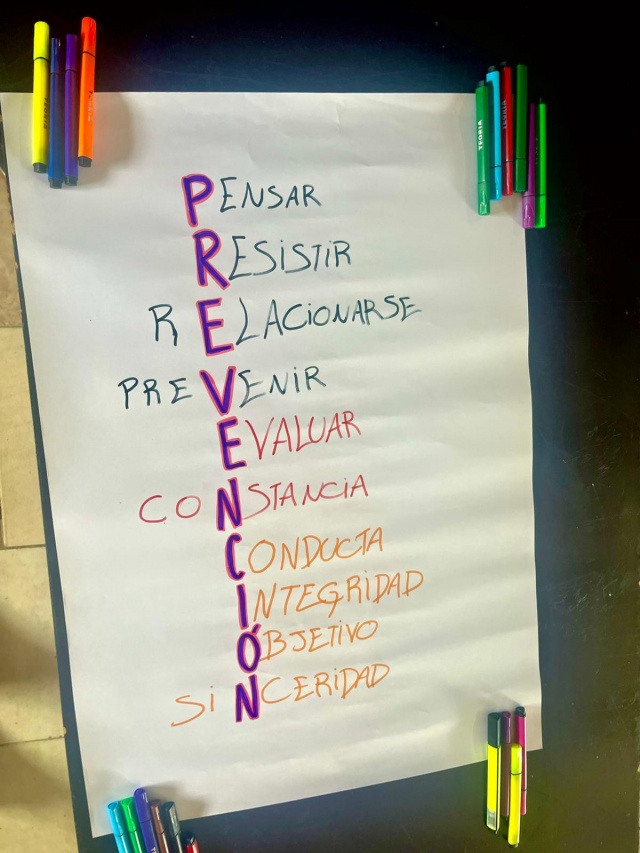 PENSAR
RESISTIR
RELACIONARSE
PREVENIR
EVALUAR
CONSTANCIA
CONDUCTA
INTEGRIDAD
ÓBJETIVO
SINCERIDAD
TEORIA
TEORIA